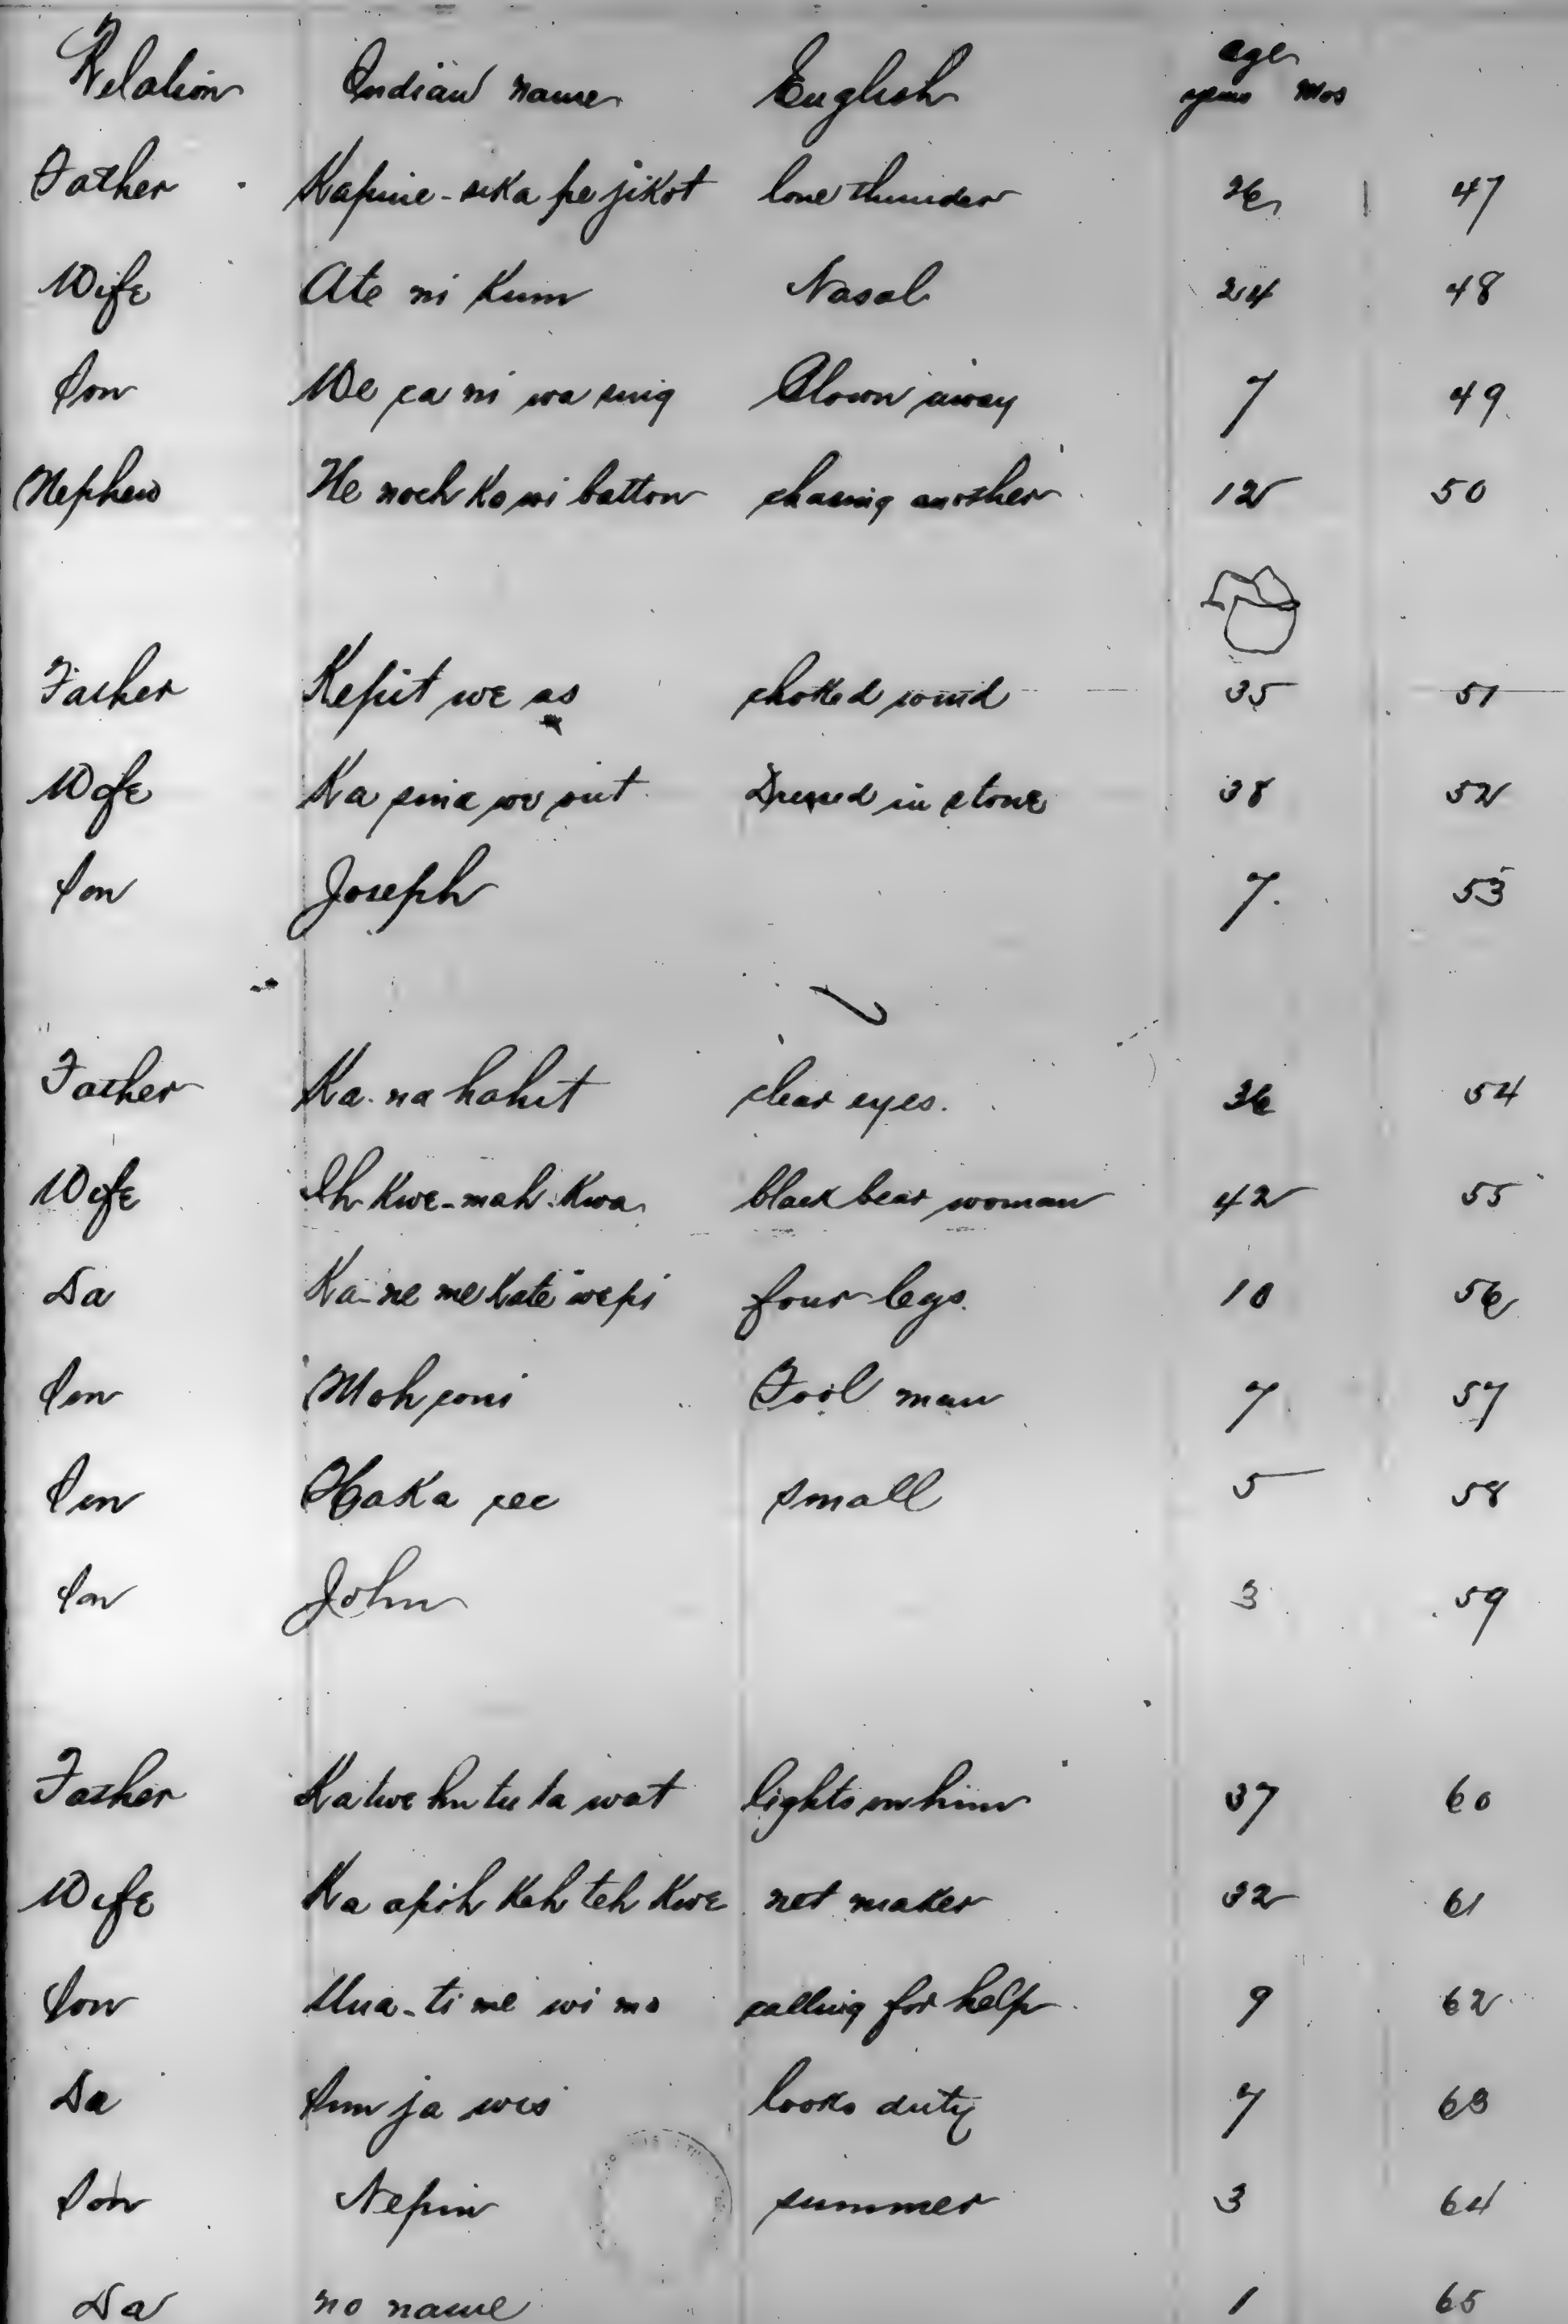 Relation Indian name English age
years Mos
Father Kapine-sika pe jikot lone thunder 26 47
Wife Ate ni Kum Nasal 24 48
Son We pa ni wa sing Blown away 7 49
Nephew He noch Ko wi batton chasing another 12 50
Father Kepit we as choked wind 35 51
Wife Ka sina we sut Dressed in stone 38 52
Son Joseph 7. 53
Father Ka-na hahit clear eyes. 36 54
Wife Ih Kwe-mah-Kwa black bear woman 42 55
Da Ka-ne me Kate wepi four legs. 10 56
Son Moh coni Fool man 7 57
Son small 5 58
Son John 3 59
Father Katwe hu tu ta wat lights on him 37 60
Wife Ka apih Keh teh Kwe net maker 32 61
Son ti me wi mo calling for help 9 62
Da ja wis looks duty 7 63
Son Nepin summer 3 64
Da no name 1 65